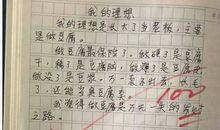 我的理想
我的理想是长大了当老板，主要
是做豆腐。
做豆腐最保险了。做硬了是豆腐
干，稀了是豆腐脑，薄了是豆腐皮，
做没了是豆浆。万一卖不出去，长毛
了，还能当臭豆腐卖。
我觉得做豆腐是万无一失的
之路。
100